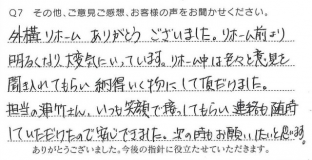 Q7 その他、ご意見ご感想、お客様の声をお聞かせください。
外構リホーム ありがとう ございました。リホーム前より
明るくなり、大変気にいっています。リホーム中は色々と意見を
聞き入れてもらい 納得いく物にして頂けました。
担当の さん、いつも笑顔で接してもらい 連絡も随時
していただけたので安心できました。次の時もお願いしたいと思います。
ありがとうございました。今後の指針に役立たせていただきます。